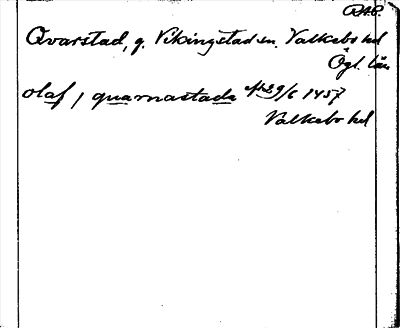 RAP.
Qvarstad, g. Vikingstad sn. Valkebo hd
Ögl. län
olaf j quarnastada afskr 29/6 1457
Valkebo hd